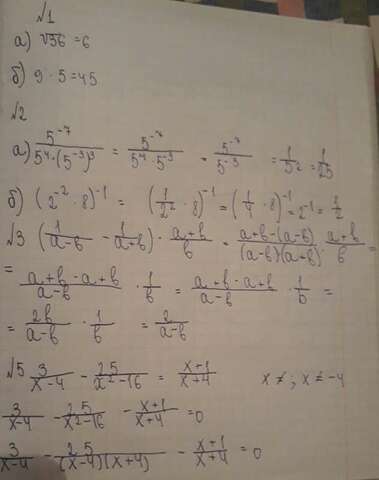 №1
а) √36 = 6
б) 9 · 5 = 45
№2
а) 5^-7 / 5^4·(5^-3)^3 = 5^-7 / 5^4·5^-9 = 5^-7 / 5^-5 = 1/5^2 = 1/25
б) (2^-2 · 8)^-1 = (1/2^2 · 8)^-1 = (1/4 · 8)^-1 = 2^-1 = 1/2
№3 (1/a-b - 1/a+b) · a+b/b = a+b-(a-b)/(a-b)(a+b) · a+b/b =
= a+b-a+b/a-b · 1/b = a+b-a+b/a-b · 1/b =
= 2b/a-b · 1/b = 2/a-b
№5 3/x-4 - 25/x²-16 = x+1/x+4 x ≠ ; x ≠ -4
3/x-4 - 25/x²-16 - x+1/x+4 = 0
3/x-4 - 25/(x-4)(x+4) - x+1/x+4 = 0